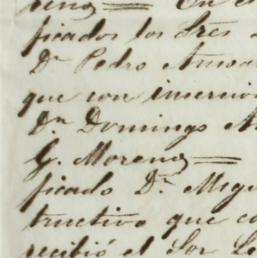 reno = En el
ficados los Sres
Dn Pedro Anto
que con insercion
Dn Domingo A
G. Moreno =
ficado Dn Migu
tructivo que co
recibió el Sor